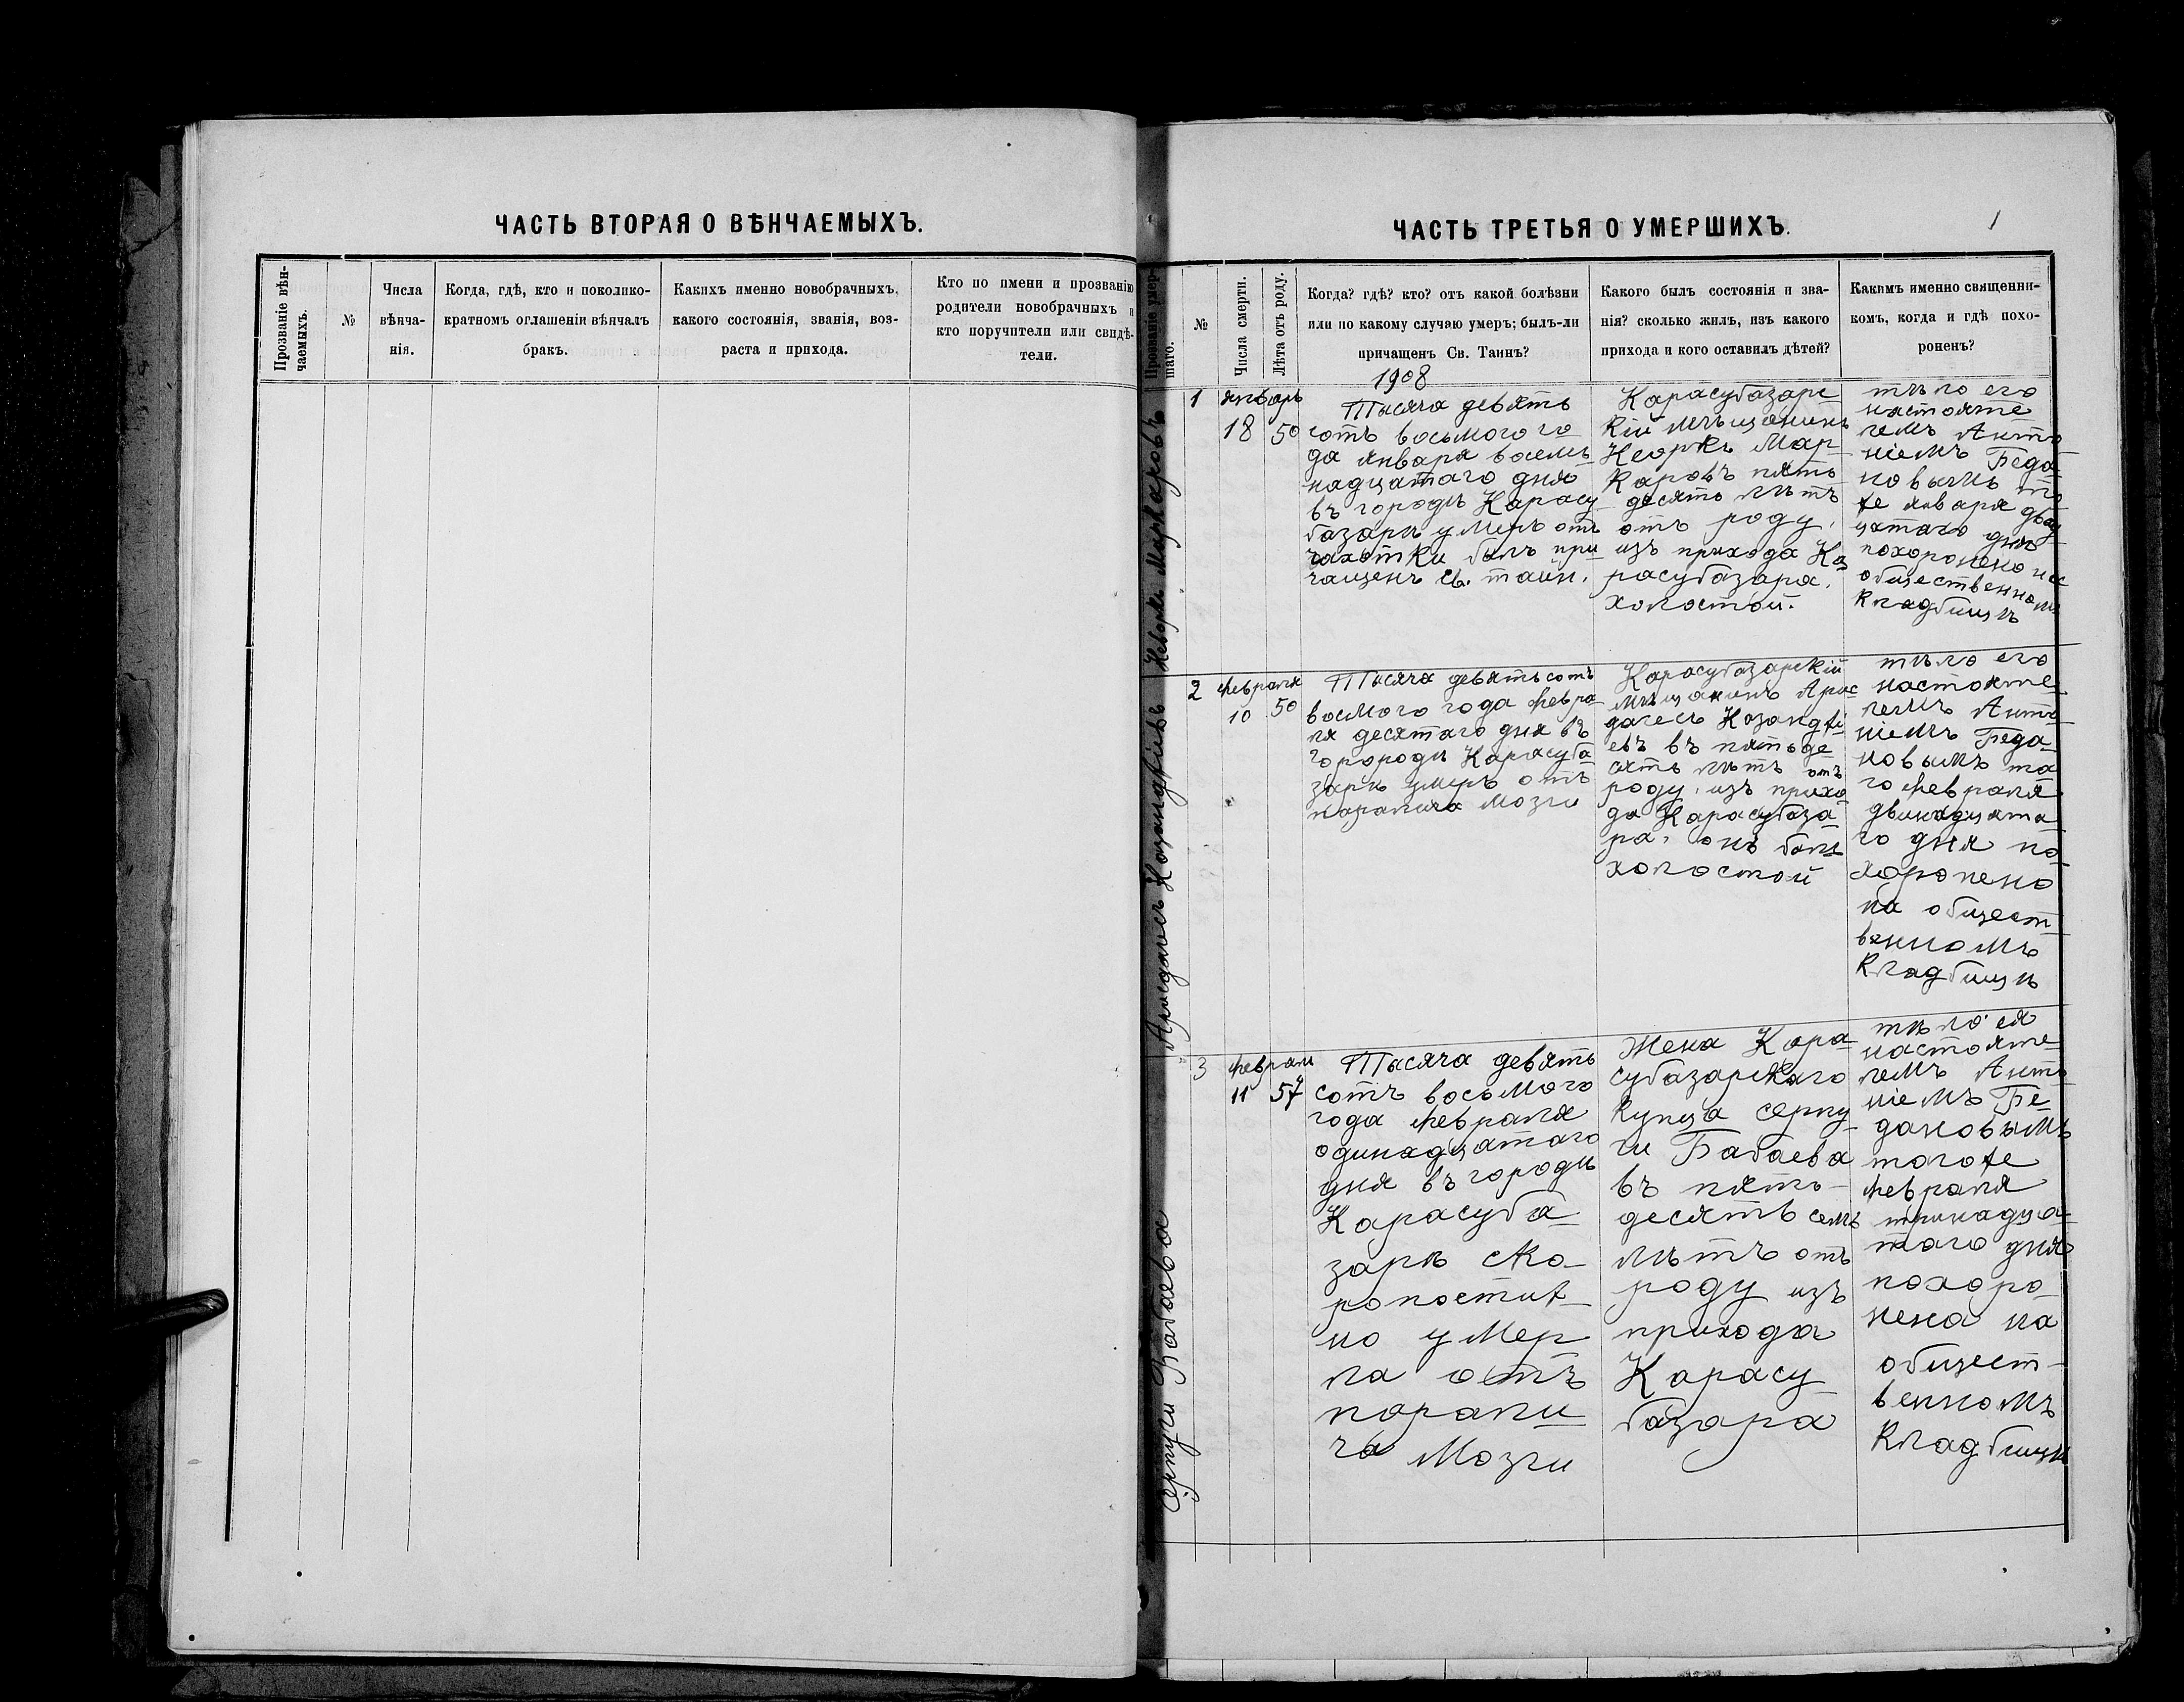 ЧАСТЬ ВТОРАЯ О ВѢНЧАЕМЫХЪ.
Прозваніе вѣн-
чаемыхъ.
№
Числа
вѣнча-
нія.
Когда, гдѣ, кто и поколико-
кратномъ оглашеніи вѣнчалъ
бракъ.
Какихъ именно новобрачныхъ,
какого состоянія, званія, воз-
раста и прихода.
Кто по имени и прозванію
родители новобрачныхъ и
кто поручители или свидѣ-
тели.
ЧАСТЬ ТРЕТЬЯ О УМЕРШИХЪ.
1
Прозваніе умер-
шаго.
№
Числа смерти.
Лѣта отъ роду.
Когда? гдѣ? кто? отъ какой болѣзни
или по какому случаю умеръ; былъ-ли
причащенъ Св. Таинъ?
Какого былъ состоянія и зва-
нія? сколько жилъ, изъ какого
прихода и кого оставилъ дѣтей?
Какимъ именно священни-
комъ, когда и гдѣ похо-
роненъ?
1908
Кеворкъ Маркаровъ
1
январь
18
50
Тысяча девять
сотъ восьмого го
да января восем
надцатаго дня
въ городѣ Карасу
базарѣ умеръ отъ
чахотки былъ при
чащенъ св. таин.
Карасубазарс
кій мѣщанинъ
Кеоркъ Мар
каровъ пять
десять лѣтъ
отъ роду,
изъ прихода Ка
расубазара.
холостой.
тѣло его
настояте
лемъ Анто
ніемъ Беда
новымъ то
же января двад
цатаго дня
похоронено на
общественном
кладбищѣ
Арисдагесъ Казанджіевъ
2
февраля
10
50
Тысяча девятьсотъ
восмого года февра
ля десятаго дня въ
горородѣ Карасуба
зарѣ умеръ отъ
паралича мозги
Карасубазарскій
мѣщанинъ Арис
дагесъ Казанджі
евъ въ пятьде
сять лѣтъ отъ
роду, изъ прихо
да Карасубаза
ра, онъ былъ
холостой
тѣло его
настояте
лемъ Анто
ніемъ Беда
новымъ та
го февраля
двинадцата
го дня по
хоронено
на общест
венномъ
кладбищѣ
Серпуги Бабаева
3
февраля
11
57
Тысяча девять
сотъ восьмого
года февраля
одинадцатаго
дня въ городѣ
Карасуба
зарѣ ско
ропостиж
но умер
ла отъ
парали
ча мозги
Жена Кара
субазарскаго
купца Серпу
ги Бабаева
въ пять
десять семь
лѣтъ отъ
роду изъ
прихода
Карасу
базара
тѣло ея
настояте
лемъ Анто
ніемъ Бе
дановымъ
тогоже
февраля
тринадца
таго дня
похоро
нена на
общест
венномъ
кладбищѣ